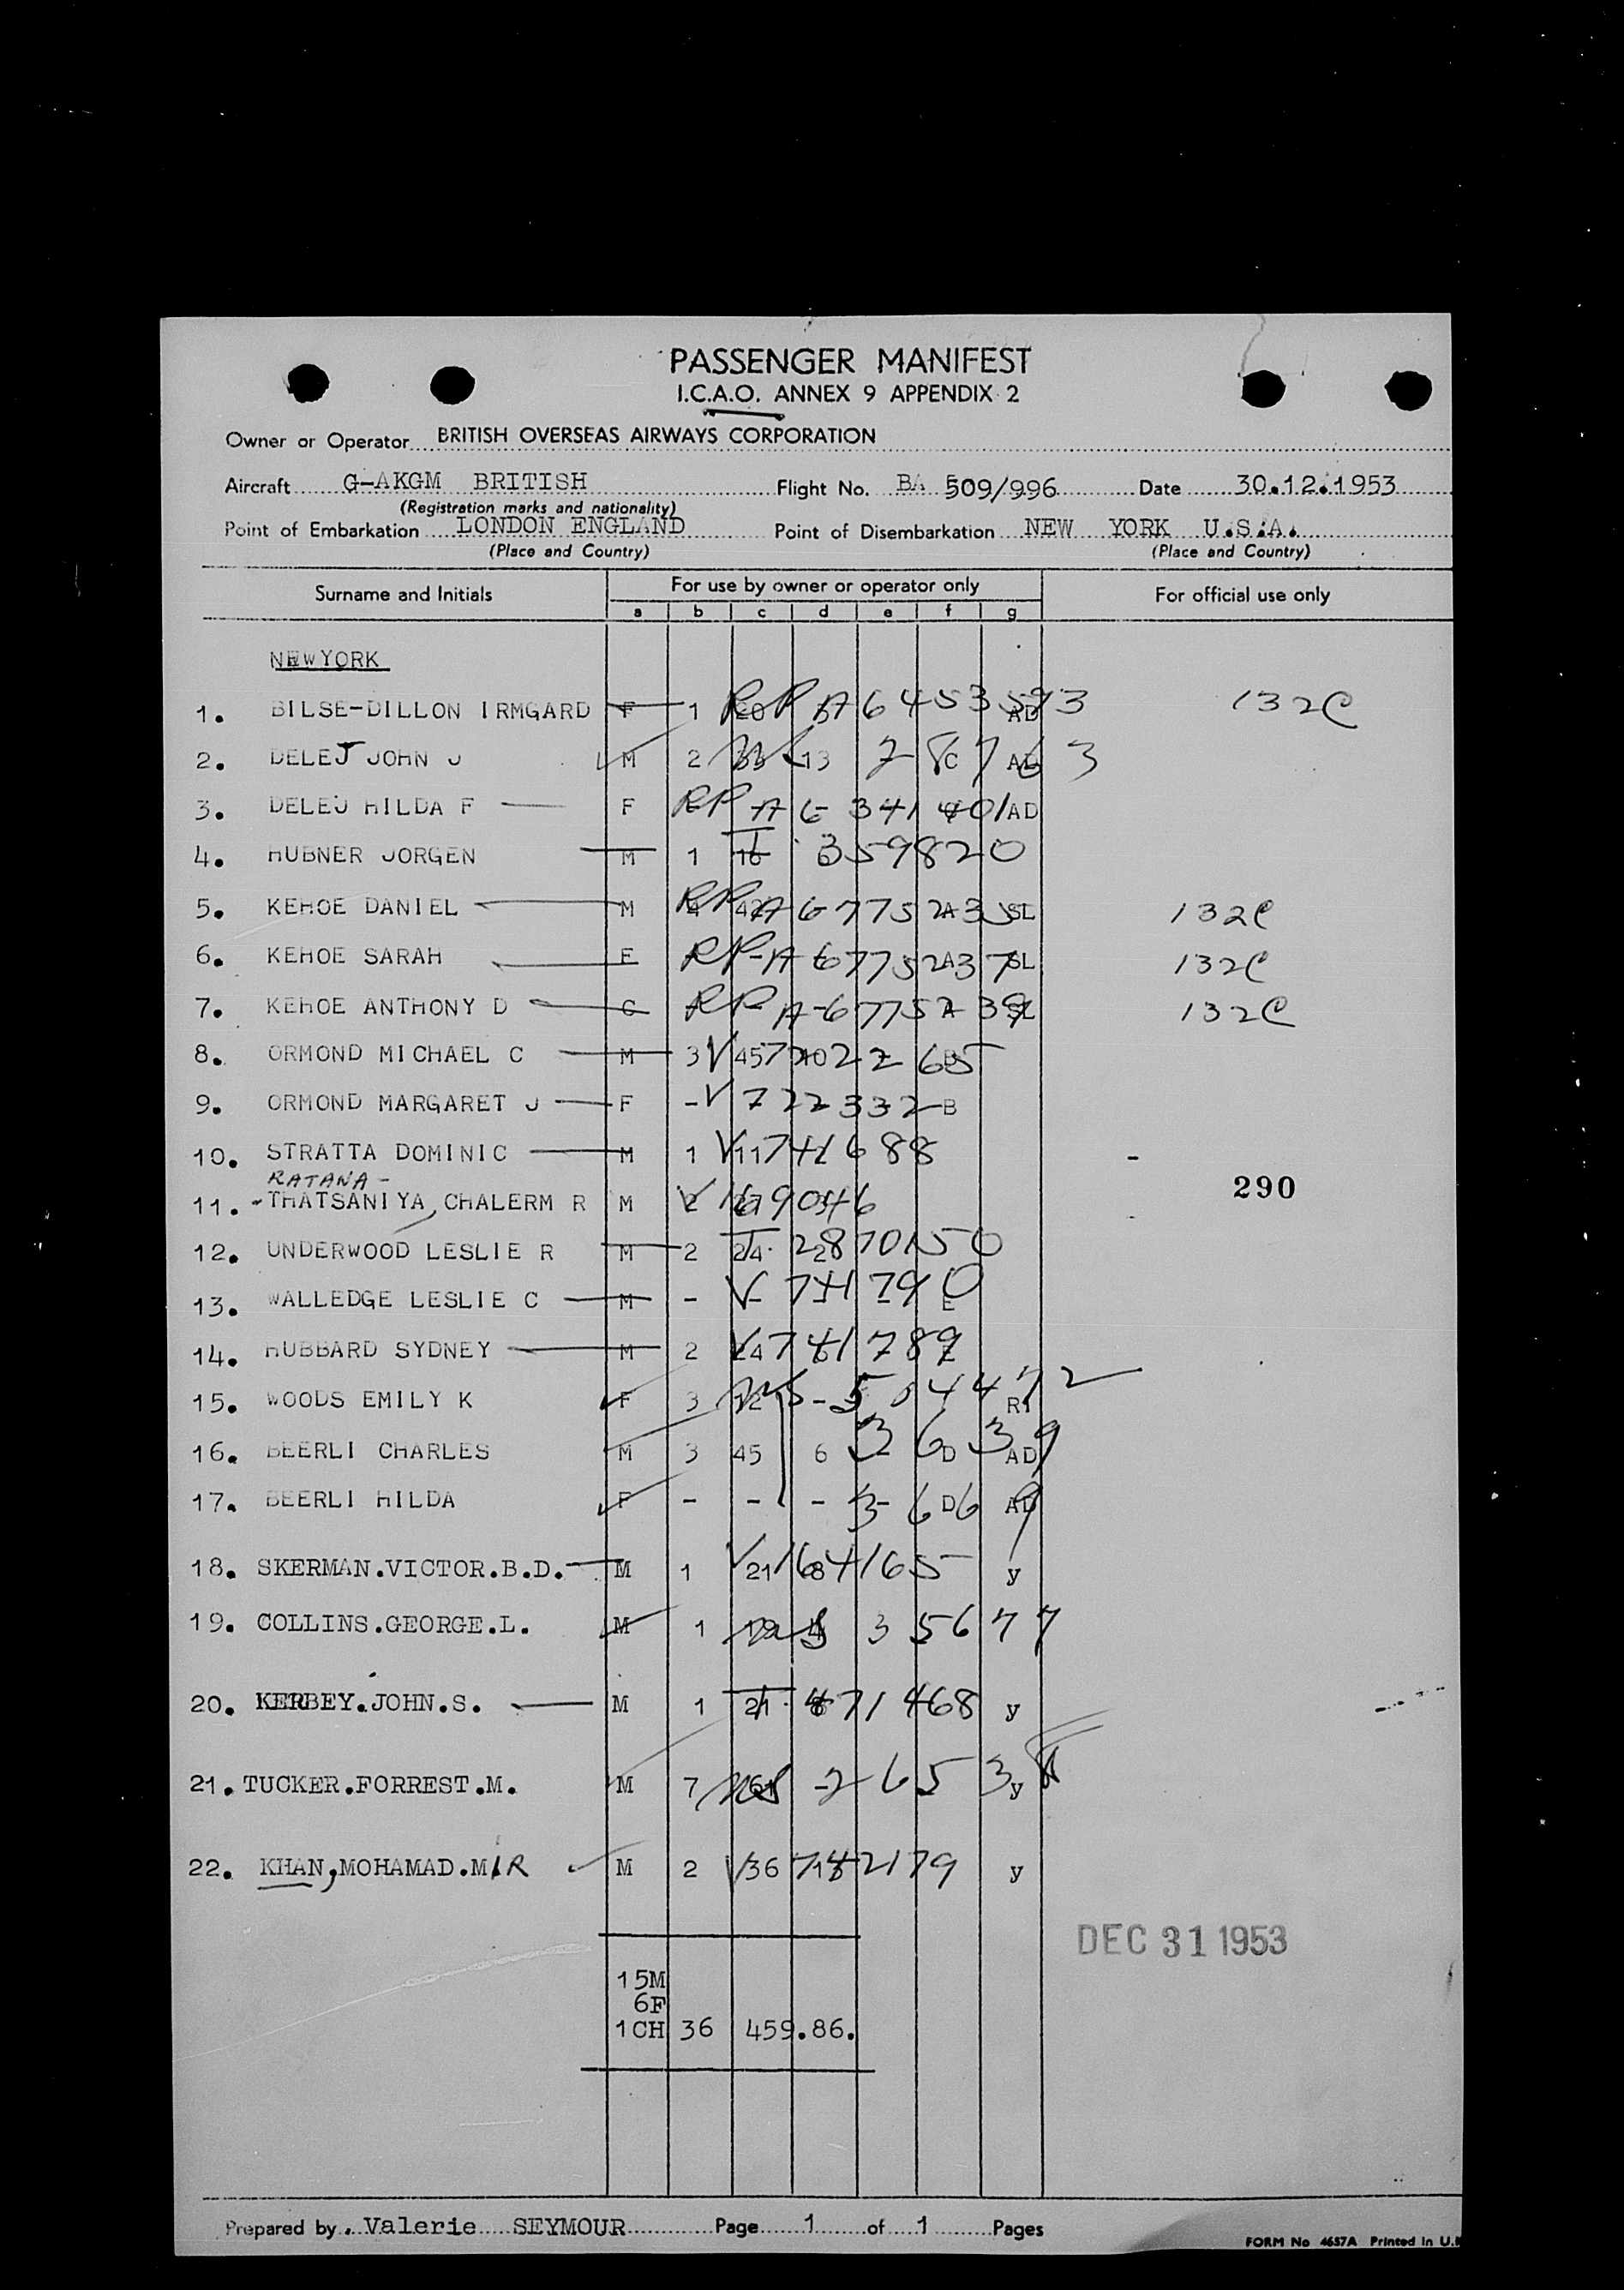 PASSENGER MANIFEST
I.C.A.O. ANNEX 9 APPENDIX 2
Owner or Operator BRITISH OVERSEAS AIRWAYS CORPORATION
Aircraft G-AKGM BRITISH Flight No. BA 509/996 Date 30.12.1953
(Registration marks and nationality)
Point of Embarkation LONDON ENGLAND Point of Disembarkation NEW YORK U.S.A.
(Place and Country) (Place and Country)
Surname and Initials For use by owner or operator only For official use only
a b c d e f g
NEWYORK
1. BILSE-DILLON IRMGARD F 1 20 RP A6453593 AD 132C
2. DELEJ JOHN J M 2 33 13 C
3. DELEJ HILDA F F RP A6 341 401 AD
4. HUBNER JORGEN M 1 16 I 359820
5. KEHOE DANIEL M 4 42 RP A6775235 A SL 132C
6. KEHOE SARAH F RP-A6775237 A SL 132C
7. KEHOE ANTHONY D C RP A-6775239 A SL 132C
8. ORMOND MICHAEL C M 3 45 V 722265 B
9. ORMOND MARGARET J F - V 722332 B
10. STRATTA DOMINIC M 1 11 V 741688
RATANA-
11. -THATSANIYA, CHALERM R M 2 V 169046 290
12. UNDERWOOD LESLIE R M 2 24 22 I 2870150
13. WALLEDGE LESLIE C M - - V 741790 E
14. HUBBARD SYDNEY M 2 24 V 741789
15. WOODS EMILY K F 3 12 US - 504472
16. BEERLI CHARLES M 3 45 6 3639 D AD
17. BEERLI HILDA F - - - 3669 D AD
18. SKERMAN.VICTOR.B.D. M 1 21 8 V 164165 y
19. COLLINS.GEORGE.L. M 1 19 US 35677
20. KERBEY.JOHN.S. M 1 21 8 I 471468 y
21. TUCKER.FORREST.M. M 7 US 2653 y
22. KHAN, MOHAMAD.MIR M 2 36 V 742179 y
DEC 31 1953
15M
6F
1CH 36 459.86.
Prepared by Valerie SEYMOUR Page 1 of 1 Pages
FORM No 4657A Printed in U.